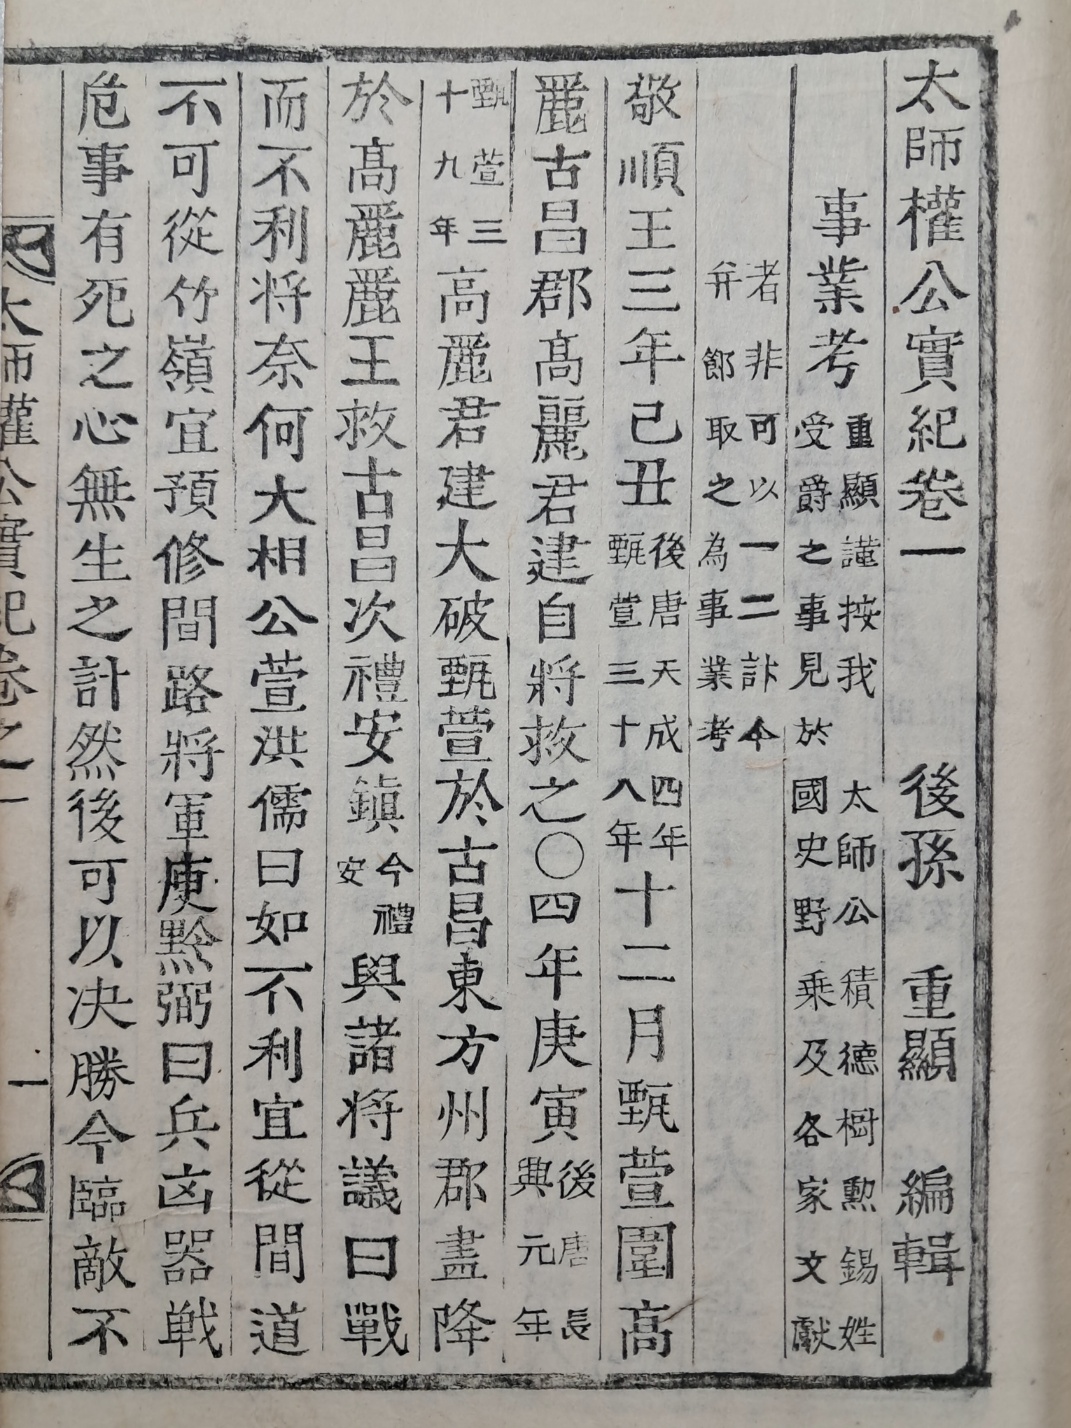 太師權公實紀卷一　後孫　重顯　編輯
事業考重顯謹按我　太師公積德樹勲錫姓受爵之事見於　國史野乘及各家文獻
者非可以一二計今并節取之為事業考
敬順王三年己丑後唐天成四年甄萱三十八年十二月甄萱圍高
麗古昌郡高麗君建自將救之○四年庚寅後唐長興元年
甄萱三十九年高麗君建大破甄萱於古昌東方州郡盡降
於高麗麗王救古昌次禮安鎮今禮安與諸將議曰戰
而不利將奈何大相公萱洪儒曰如不利宜從間道
不可從竹嶺宜預修間路將軍庾黔弼曰兵凶器戦
危事有死之心無生之計然後可以决勝今臨敵不
太師權公實紀卷之一　一